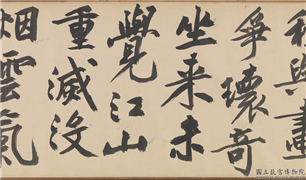 與畫
爭瓌奇
坐来未
覺江山
重滅没
烟雲氣
國立故宮博物院